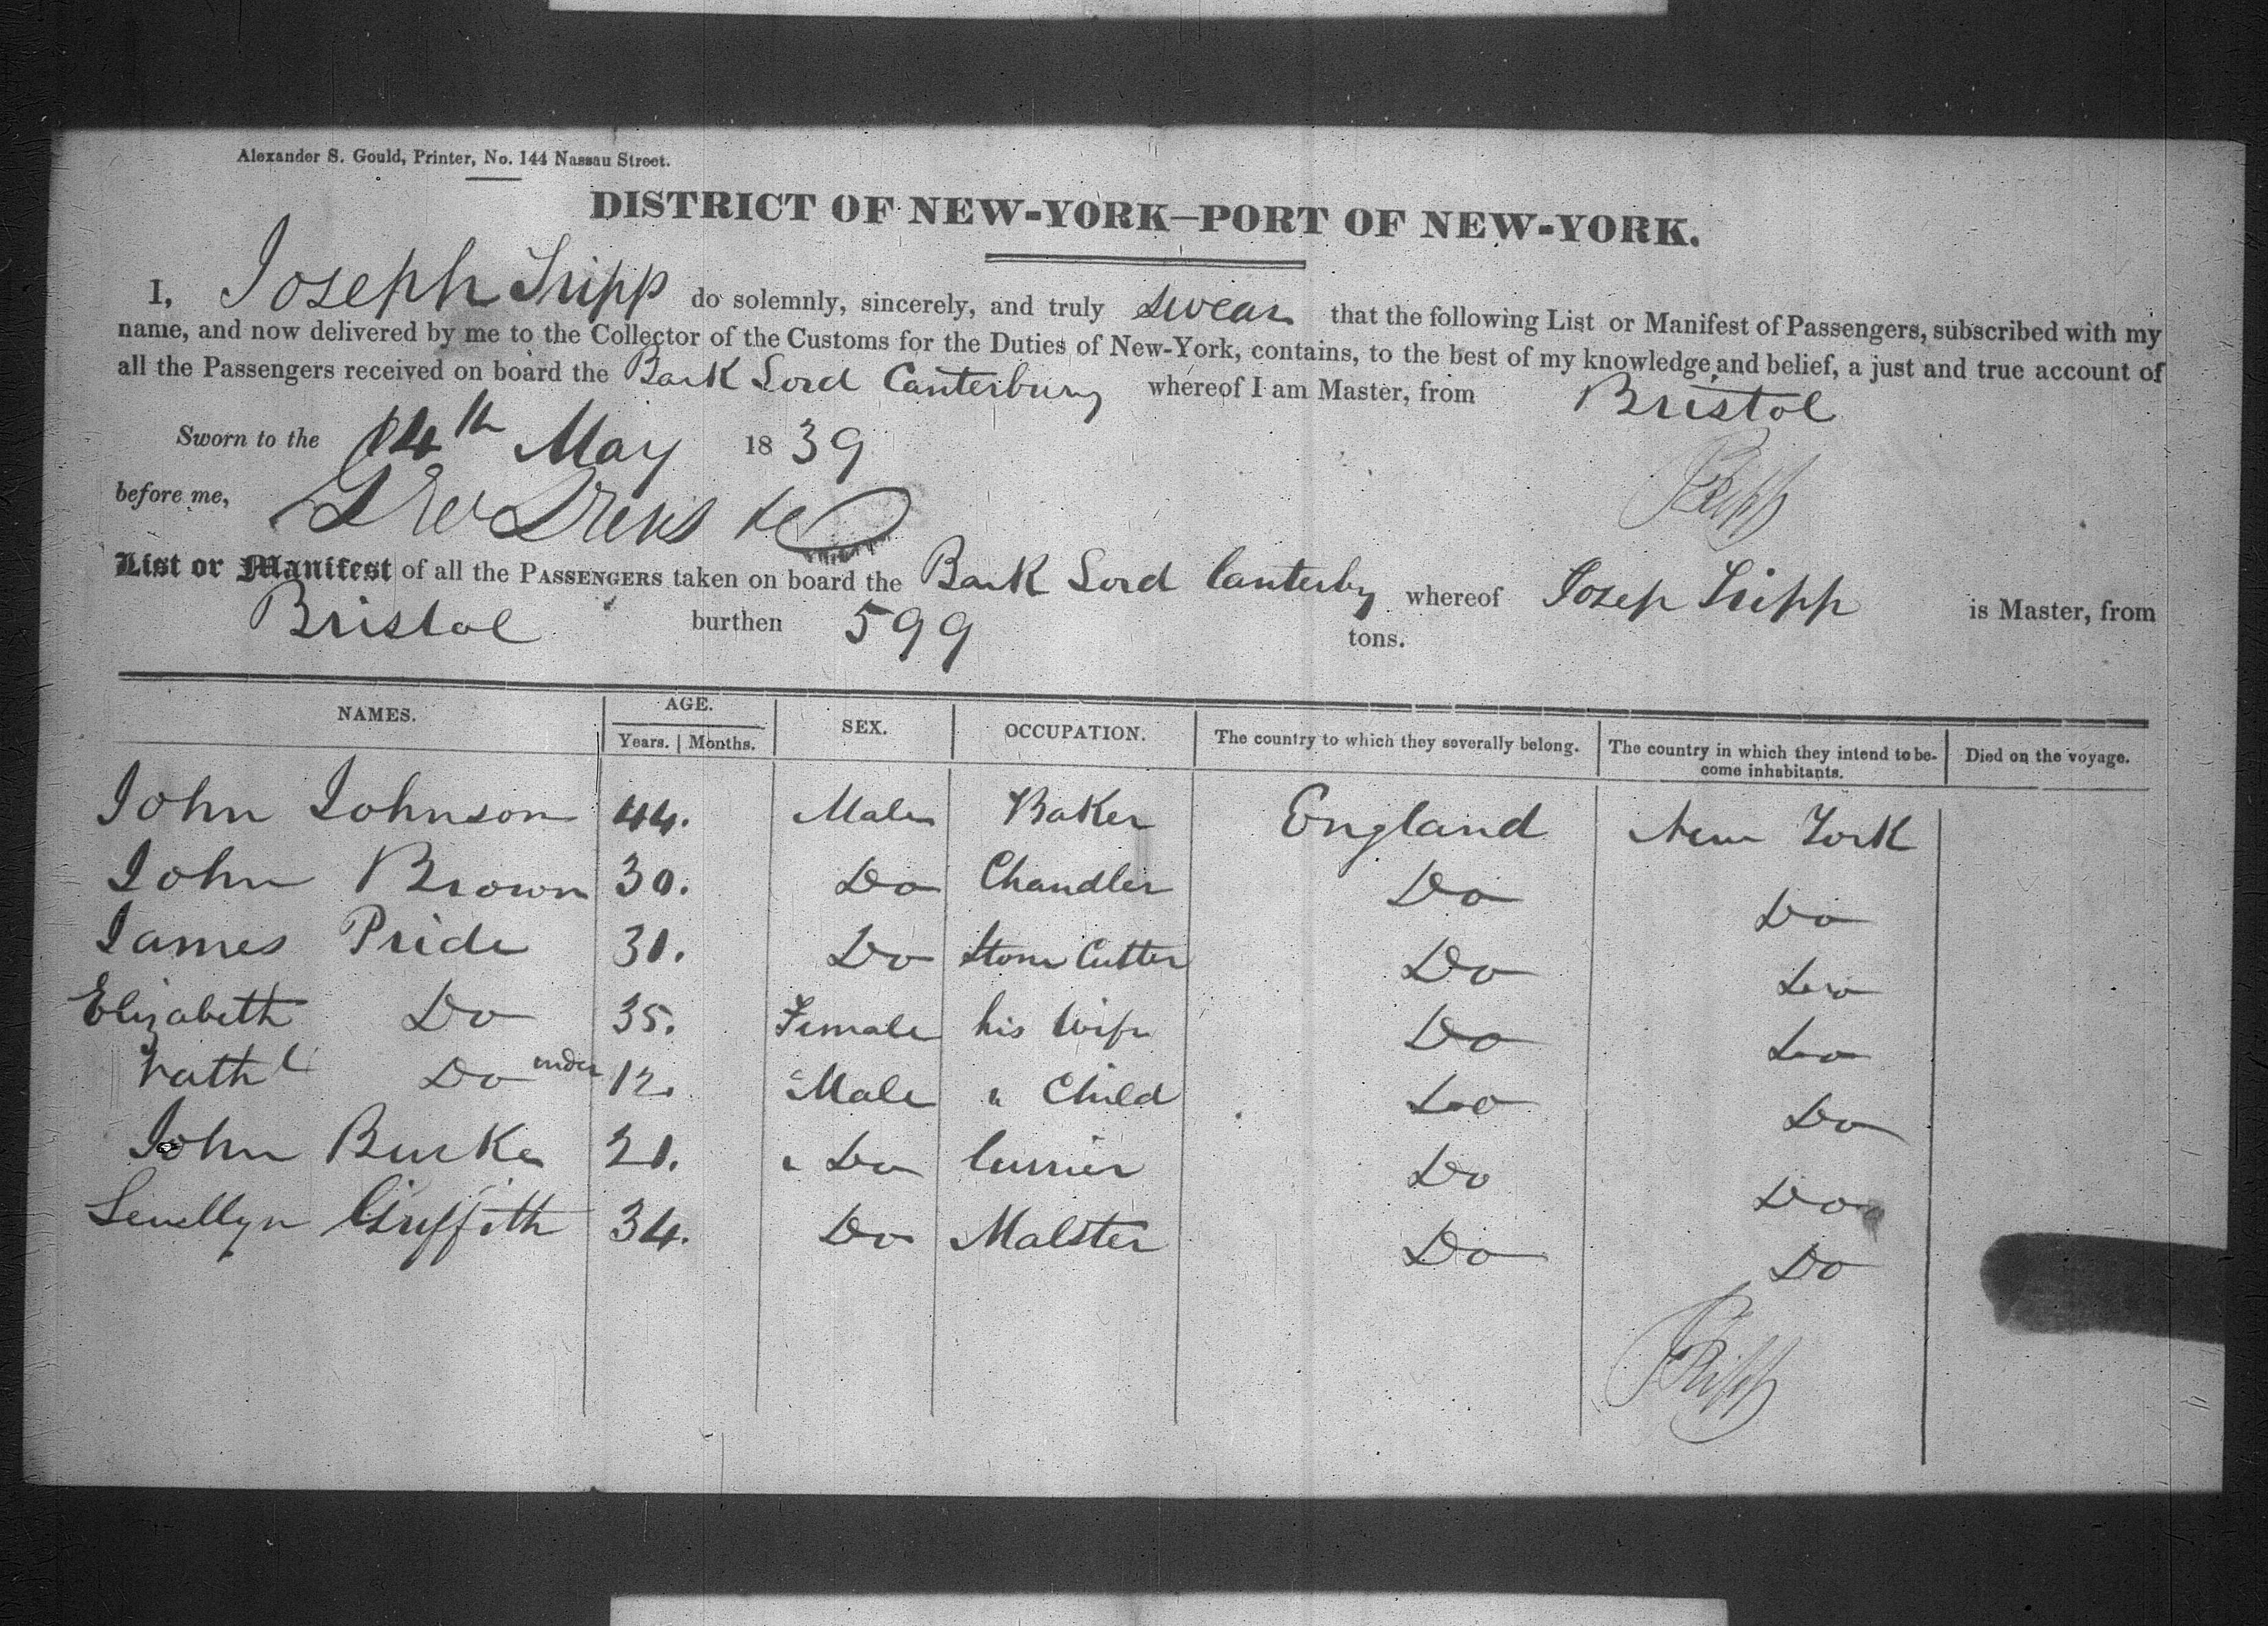 Alexander S. Gould, Printer, No. 144 Nassau Street.
DISTRICT OF NEW-YORK—PORT OF NEW-YORK.
I, Joseph Tripp do solemnly, sincerely, and truly swear that the following List or Manifest of Passengers, subscribed with my
name, and now delivered by me to the Collector of the Customs for the Duties of New-York, contains, to the best of my knowledge and belief, a just and true account of
all the Passengers received on board the Bark Lord Canterbury whereof I am Master, from Bristol
Sworn to the 14th May 1839
before me,
JTripp
List or Manifest of all the PASSENGERS taken on board the Bark Lord Canterby whereof Josep Tripp is Master, from
Bristol burthen 599 tons.
NAMES. AGE. SEX. OCCUPATION. The country to which they severally belong. The country in which they intend to be-come inhabitants. Died on the voyage.
Years. Months.
John Johnson 44. Male Baker England New York
John Brown 30. Do Chandler Do Do
James Pride 30. Do Stone Cutter Do Do
Elizabeth Do 35. Female his Wife Do Do
Nathl Do under 12. Male " Child Do Do
John Burke 20. " Do Currier Do Do
Lewellyn Griffith 34. Do Malster Do Do
JTripp